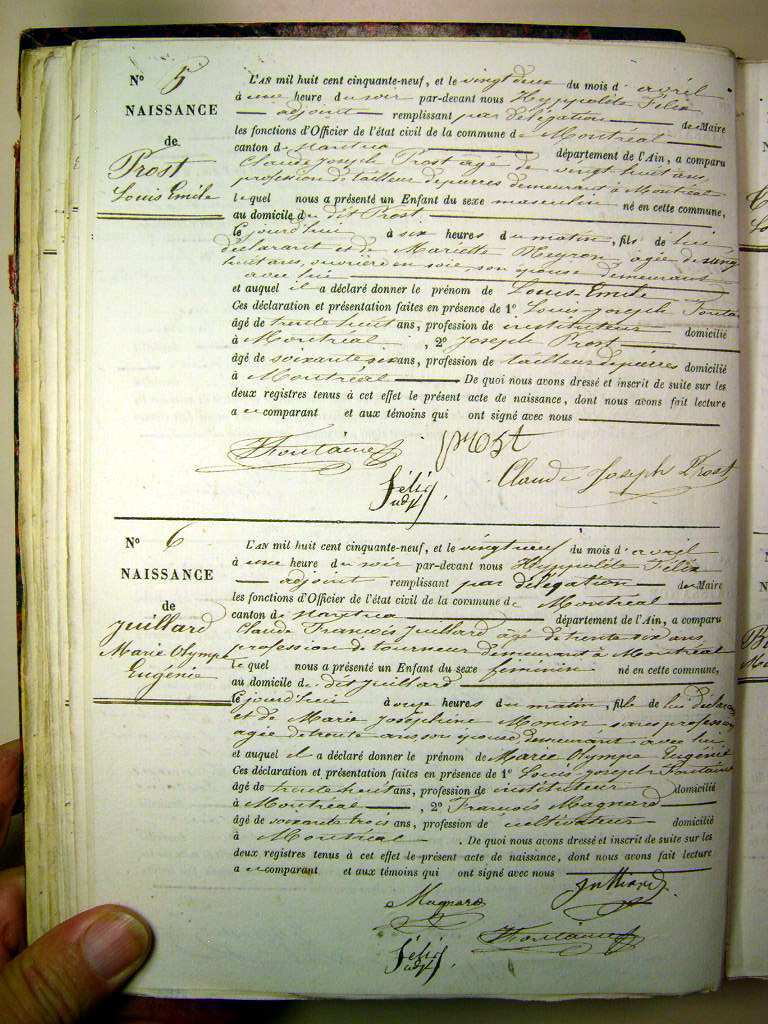 N° 5
NAISSANCE
de
Prost
Louis Emile
L'AN mil huit cent cinquante-neuf, et le vingt deux du mois d'avril
à une heure du soir par-devant nous Hyppolite Félix
adjoint remplissant par délégation de Maire
les fonctions d'Officier de l'état civil de la commune de Montréal
canton de Nantua département de l'Ain, a comparu
Claude Joseph Prost agé de vingt huit ans,
profession de tailleur de pierres demeurant à Montréal
lequel nous a présenté un Enfant du sexe masculin né en cette commune,
au domicile du dit Prost
ce jourd'hui à six heures du matin, fils de lui
déclarant et de Mariette Peyron, agée de vingt
huit ans, ouvrière en soie, son épouse demeurant
avec lui
et auquel il a déclaré donner le prénom de Louis-Emile
Ces déclaration et présentation faites en présence de 1° Louis-Joseph Fontaine
âgé de trente huit ans, profession de instituteur domicilié
à Montréal , 2° Joseph Prost
âgé de soixante six ans, profession de tailleur de pierres domicilié
à Montréal De quoi nous avons dressé et inscrit de suite sur les
deux registres tenus à cet effet le présent acte de naissance, dont nous avons fait lecture
au comparant et aux témoins qui ont signé avec nous
Fontaine prost
Félix adj Claude Joseph Prost
N° 6
NAISSANCE
de
Juillard
Marie Olympe
Eugénie
L'AN mil huit cent cinquante-neuf, et le vingt neuf du mois d'avril
à une heure du soir par-devant nous Hyppolite Félix
adjoint remplissant par délégation de Maire
les fonctions d'Officier de l'état civil de la commune de Montréal
canton de Nantua département de l'Ain, a comparu
Claude François Juillard âgé de trente six ans,
profession de tourneur demeurant à Montréal
lequel nous a présenté un Enfant du sexe féminin né en cette commune,
au domicile du dit Juillard
ce jourd'hui à onze heures du matin, fille de lui déclarant
et de Marie Joséphine Monin sans profession
agée de trente ans, son épouse demeurant avec lui
et auquel il a déclaré donner le prénom de Marie Olympe Eugénie
Ces déclaration et présentation faites en présence de 1° Louis-Joseph Fontaine
âgé de trente huit ans, profession de instituteur domicilié
à Montréal , 2° François Magnard
âgé de soixante trois ans, profession de cultivateur domicilié
à Montréal . De quoi nous avons dressé et inscrit de suite sur les
deux registres tenus à cet effet le présent acte de naissance, dont nous avons fait lecture
au comparant et aux témoins qui ont signé avec nous
Magnard Juilliard
Félix adj Fontaine